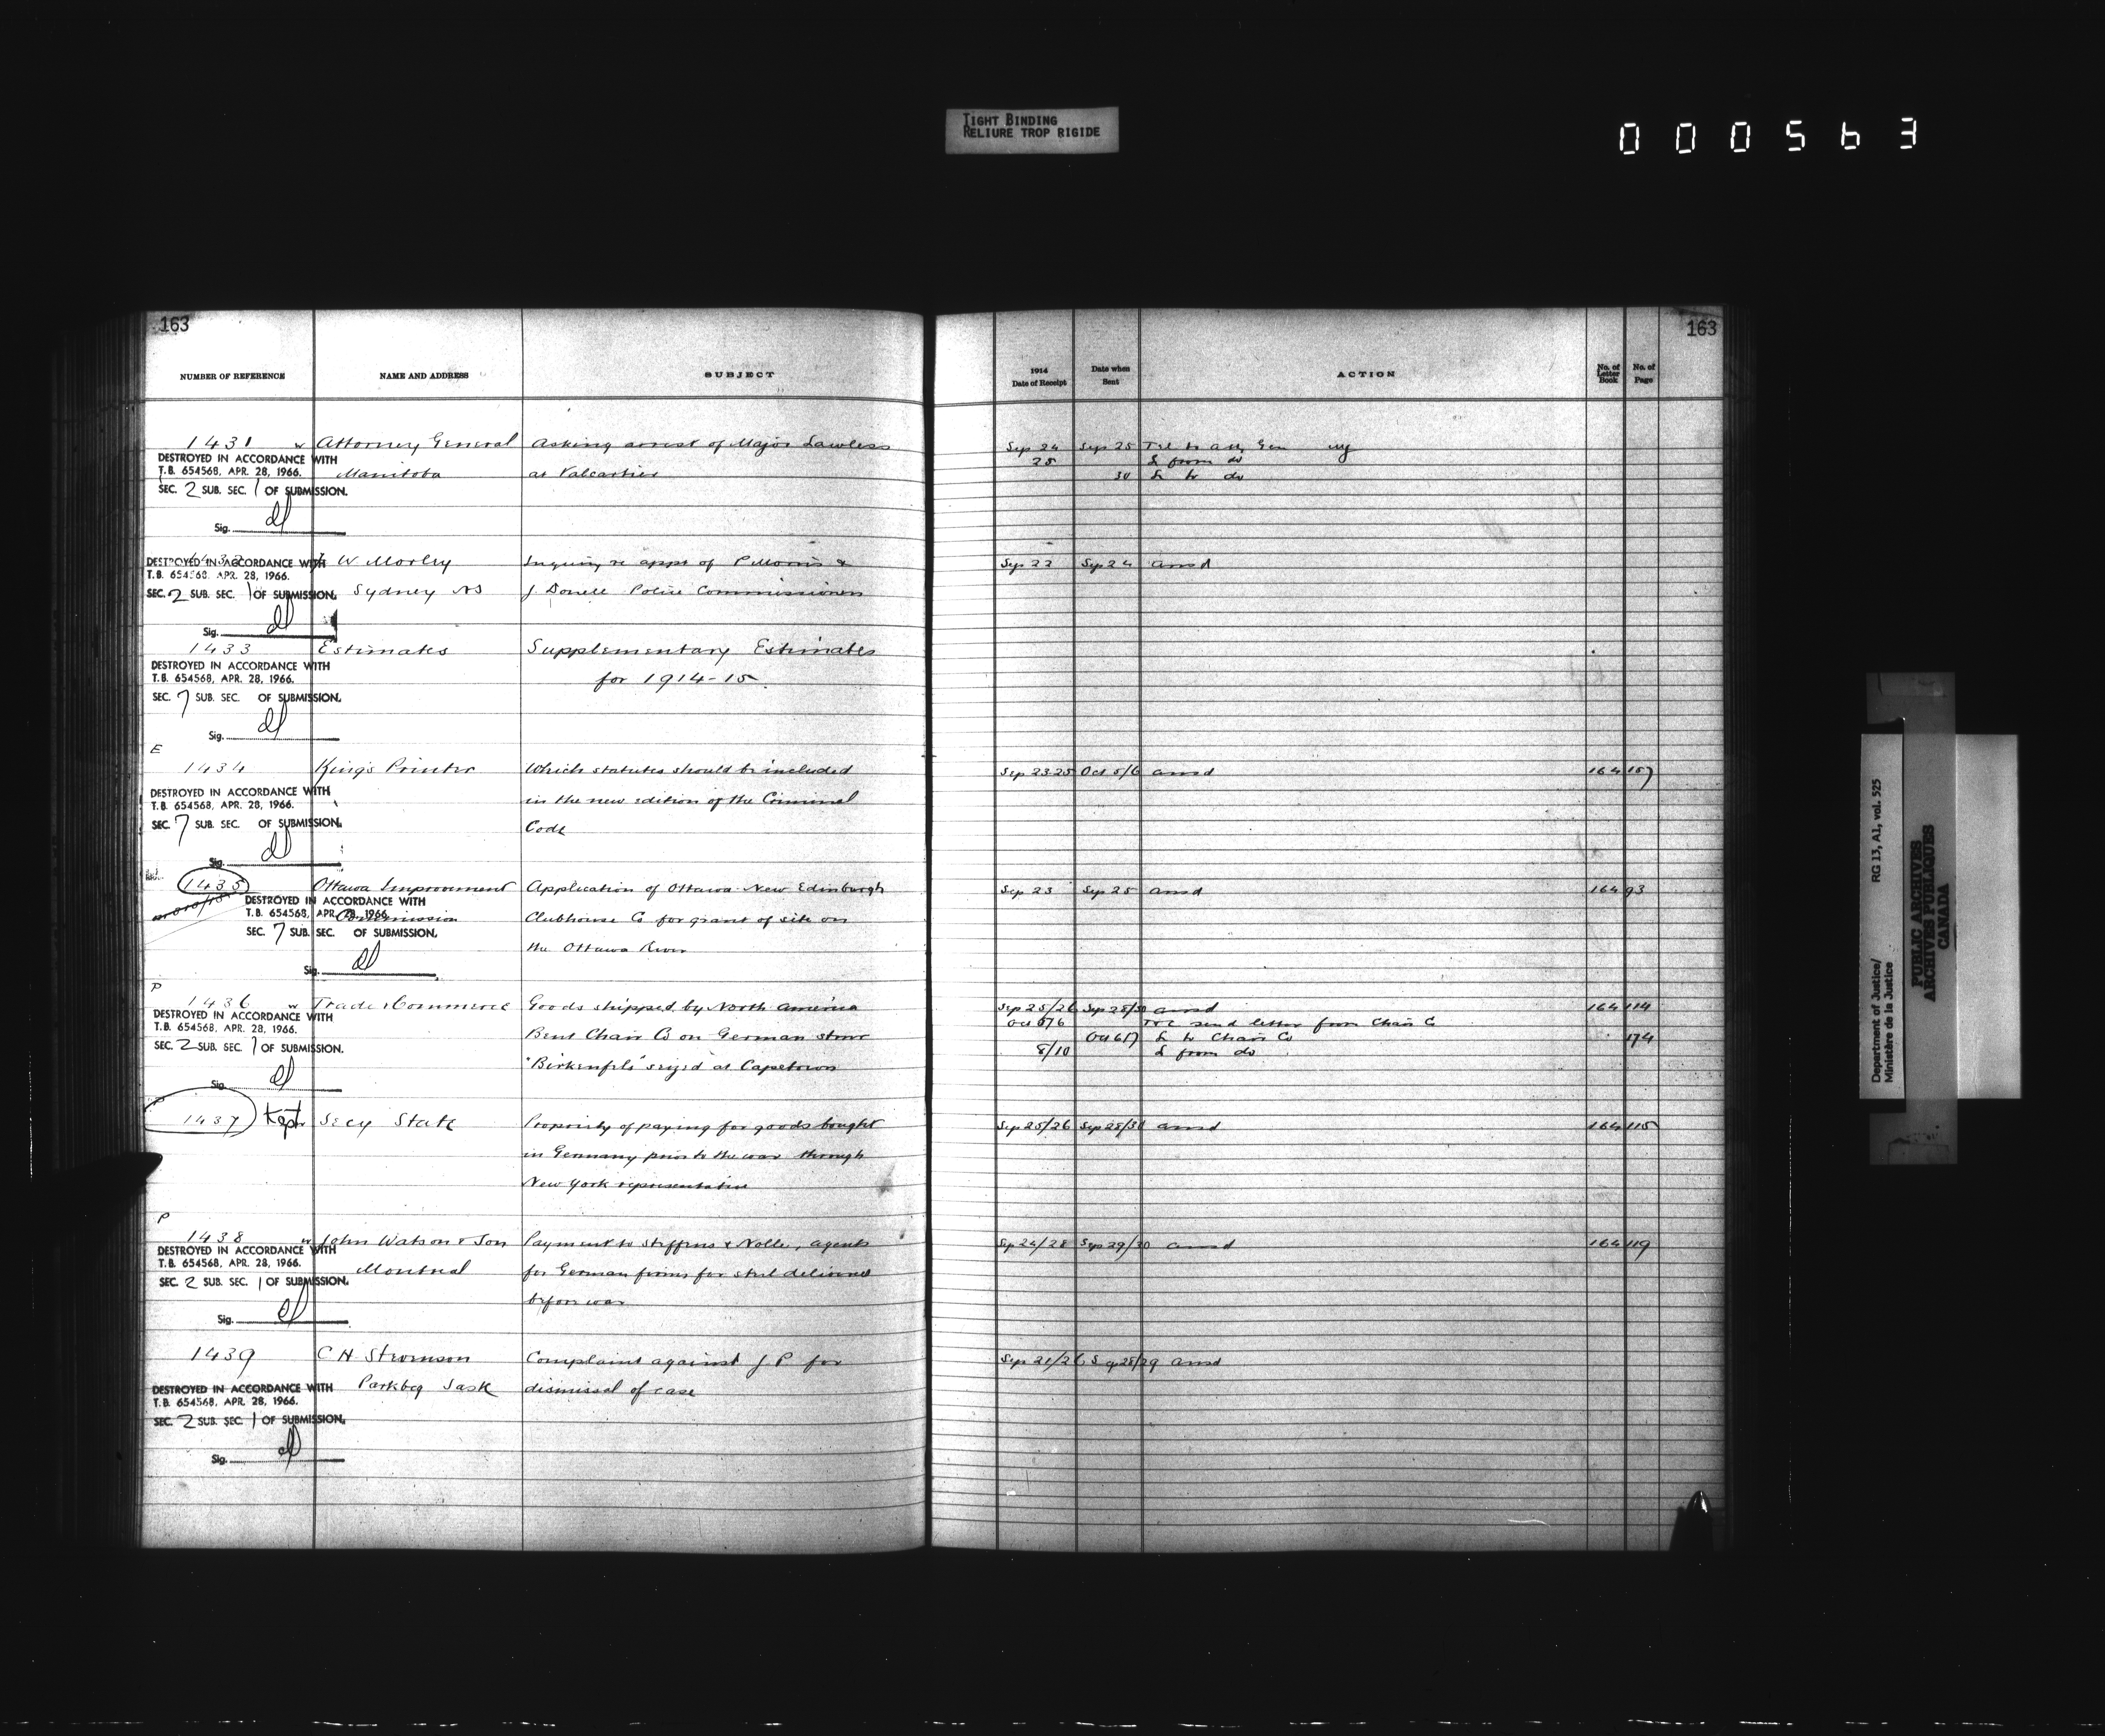 TIGHT BINDING
RELIURE TROP RIGIDE
000563
163
163
NUMBER OF REFERENCE NAME AND ADDRESS SUBJECT
1914 Date of Receipt Date when Sent ACTION No. of Letter Book No. of Page
1431 w Attorney General Asking arrest of Major Lawless Sep 24 Sep 25 Tel to Atty Gen
DESTROYED IN ACCORDANCE WITH
T.B. 654568, APR. 28, 1966. Manitoba at Valcartier 25 L from do
SEC. 2 SUB. SEC. 1 OF SUBMISSION. 30 L to do
Sig.
1432 W Morley Inquiry re appt of P Morris & Sep 22 Sep 24 ansd
DESTROYED IN ACCORDANCE WITH
T.B. 654568, APR. 28, 1966.
SEC. 2 SUB. SEC. 1 OF SUBMISSION. Sydney NS J Police Commissioners
Sig.
1433 Estimates Supplementary Estimates
DESTROYED IN ACCORDANCE WITH
T.B. 654568, APR. 28, 1966. for 1914-15
SEC. 7 SUB. SEC. OF SUBMISSION.
Sig.
E
1434 King's Printer Which statutes should be included Sep 23-25 Oct 5/6 ansd 164 157
DESTROYED IN ACCORDANCE WITH
T.B. 654568, APR. 28, 1966. in the new edition of the Criminal
SEC. 7 SUB. SEC. OF SUBMISSION. Code
Sig.
1435 Ottawa Improvement Application of Ottawa New Edinburgh Sep 23 Sep 25 ansd 164 93
DESTROYED IN ACCORDANCE WITH
T.B. 654568, APR. 28, 1966. Commission Clubhouse Co for grant of site on
SEC. 7 SUB. SEC. OF SUBMISSION. the Ottawa River
Sig.
P
1436 w Trade & Commerce Goods shipped by North America Sep 25/26 Sep 28/30 ansd 164 114
DESTROYED IN ACCORDANCE WITH Oct 5/6 T&C send letter from Chair Co
T.B. 654568, APR. 28, 1966. Bent Chair Co on German stmr Oct 6/7 L to Chair Co 174
SEC. 2 SUB. SEC. 1 OF SUBMISSION. 8/10 L from do
"Birkenfels" seized at Capetown
Sig.
P
1437 Kept Secy State Propriety of paying for goods bought Sep 25/26 Sep 28/30 ansd 164 115
in Germany prior to the war through
New York representative
P
1438 w John Watson & Son Payment to Steffens & Nolle, agents Sep 24/28 Sep 29/30 ansd 164 119
DESTROYED IN ACCORDANCE WITH
T.B. 654568, APR. 28, 1966. Montreal for German firms for steel delivered
SEC. 2 SUB. SEC. 1 OF SUBMISSION. before war
Sig.
1439 C H Complaint against J P for Sep 21/26 Sep 28/29 ansd
DESTROYED IN ACCORDANCE WITH Parkbeg Sask dismissal of case
T.B. 654568, APR. 28, 1966.
SEC. 2 SUB. SEC. 1 OF SUBMISSION.
Sig.
Department of Justice/ RG 13, A1, vol. 525
Ministère de la Justice
PUBLIC ARCHIVES
ARCHIVES PUBLIQUES
CANADA